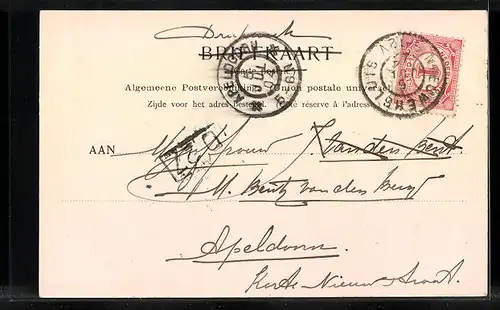 Drukwerk
BRIEFKAART
Algemeene Postvereeniging. Union postale universelle.
Zijde voor het adres bestemd. Côté réservé à l'adresse.
AAN Mejufvrouw van den Bent
M. Bentz van den Berg
Apeldoorn
Korte Nieuwstraat.
NIEUWERSLUIS
APELDOORN